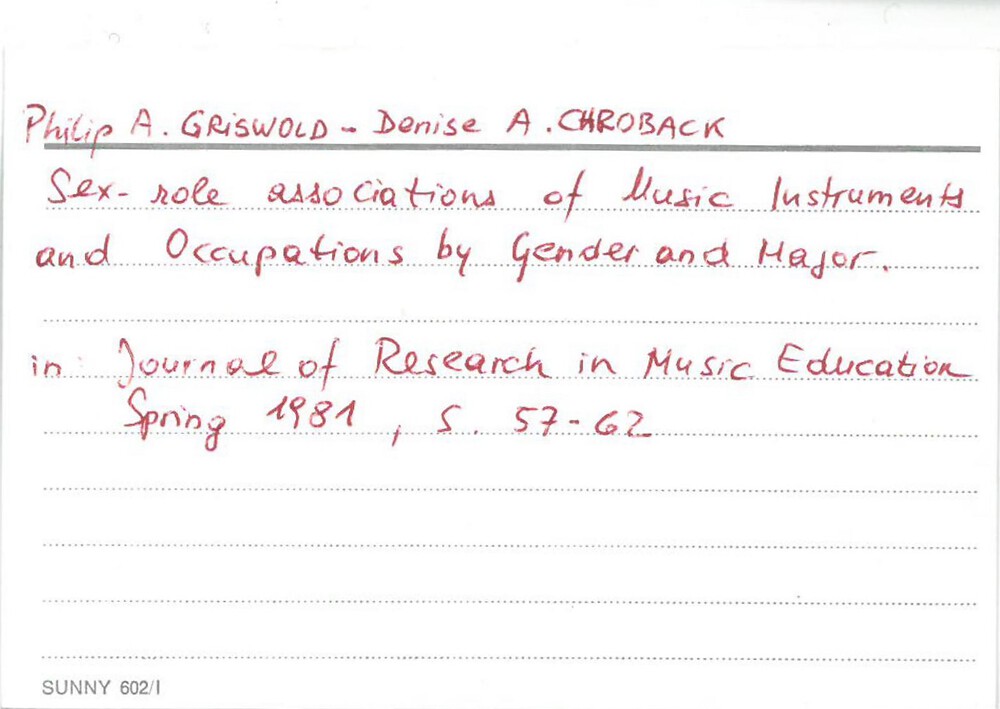 Philip A. GRISWOLD - Denise A. CHROBACK
Sex-role associations of Music Instruments
and Occupations by Gender and Major.
in: Journal of Research in Music Education
Spring 1981, S. 57-62
SUNNY 602/I